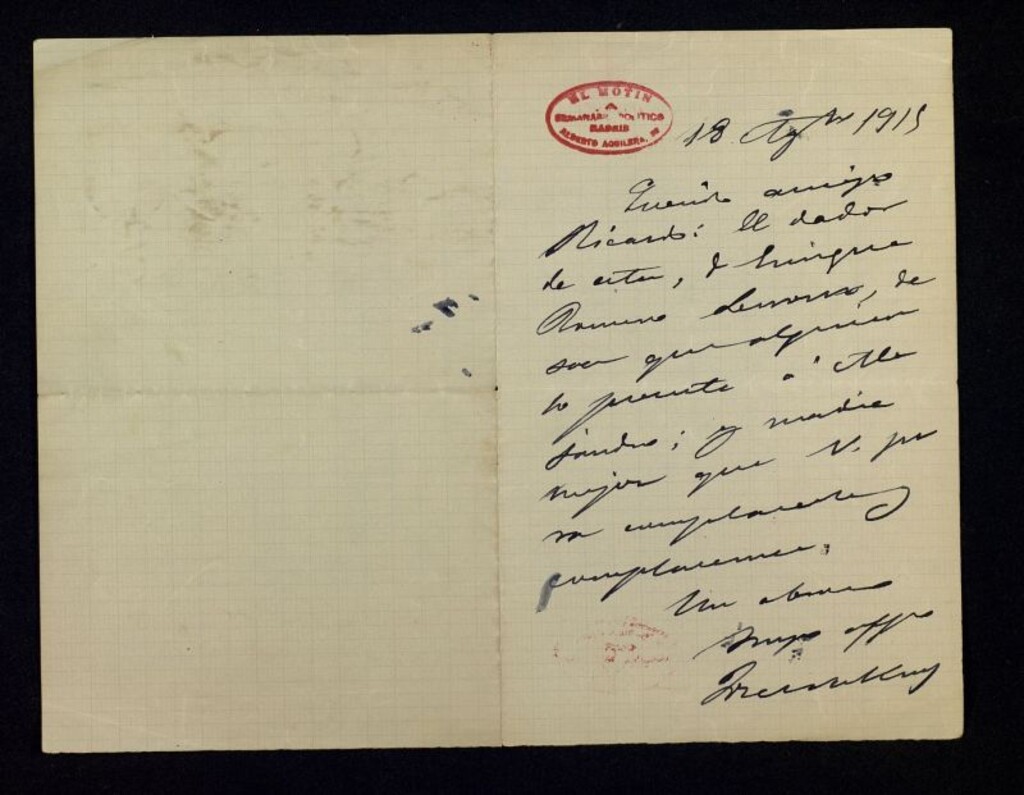 EL MOTIN
SEMANARIO POLITICO
MADRID
ALBERTO AGUILERA,
18 Agto 1915
Querido amigo
Ricardo: El dador
de esta, D
Romero de
sea que alguien
lo presente á Ale
jandro; y nadie
mejor que V. pa
ra complacerle y
complacerme.
Un abrazo
Suyo affmo